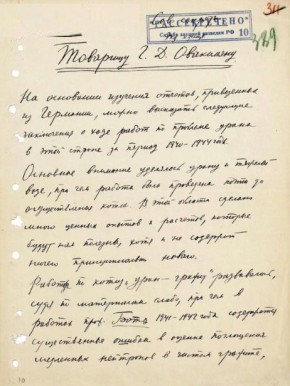 РАССЕКРЕЧЕНО
Служба внешней разведки РФ
10
Товарищу Г. Д. Овакимяну
На основании изучения отчетов, привезенных
из Германии, можно высказать следующие
заключения о ходе работ по проблеме урана
в этой стране за период 1940–1944 гг.
Основное внимание уделялось урану и тяжелой
воде, при чем работа была проведена почти до
осуществления котла. В этой области сделано
много ценных опытов и расчетов, которые
будут нам полезны, хотя и не содержат
ничего принципиально нового.
Работы по котлу „уран – графит“ развивались,
судя по материалам слабо, при чем в
работах проф. Боте 1941–1942 года содержится
существенная ошибка в оценке поглощения
медленных нейтронов в чистом графите,